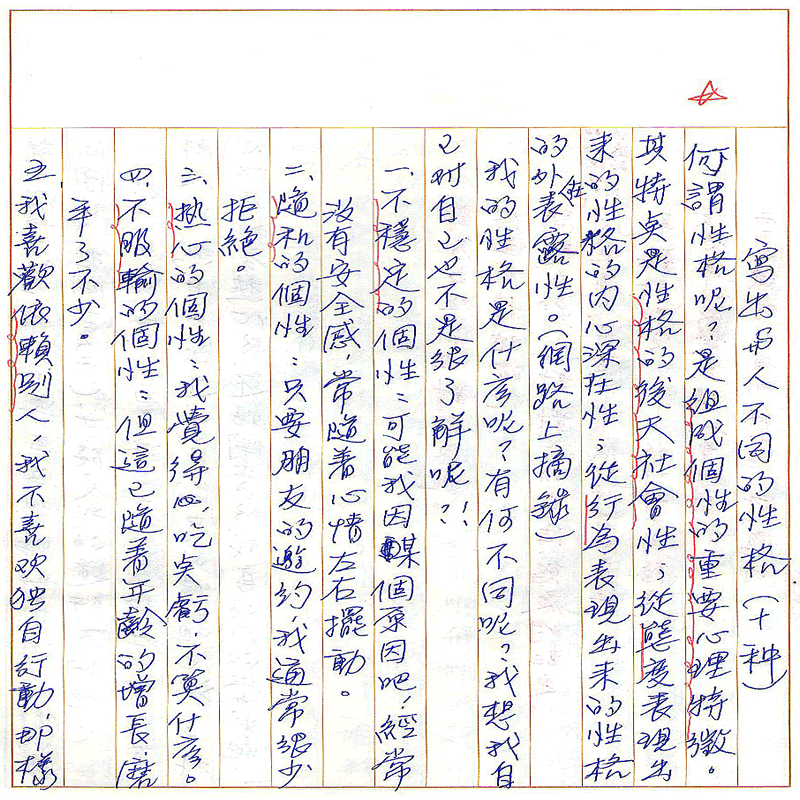 寫出与人不同的性格(十种)
何謂性格呢?是組成個性的重要心理特徵。
其特点是性格的後天社會性;從態度表現出
来的性格的內心深在性;從行為表現出来的性格
的外在表露性。(網路上摘錄)
我的性格是什広呢?有何不同呢?我想我自
己對自己也不是很了解呢?!
一.不穩定的個性:可能我因某個原因吧,經常
没有安全感,常隨着心情左右擺動。
二.隨和的個性:只要朋友的邀約,我通常很少
拒絶。
三.热心的個性:我覺得吃点虧,不算什広。
四.不服輸的個性:但這已隨着年齡的增長,磨
平了不少。
五.我喜歡依賴別人,我不喜欢独自行動,那樣